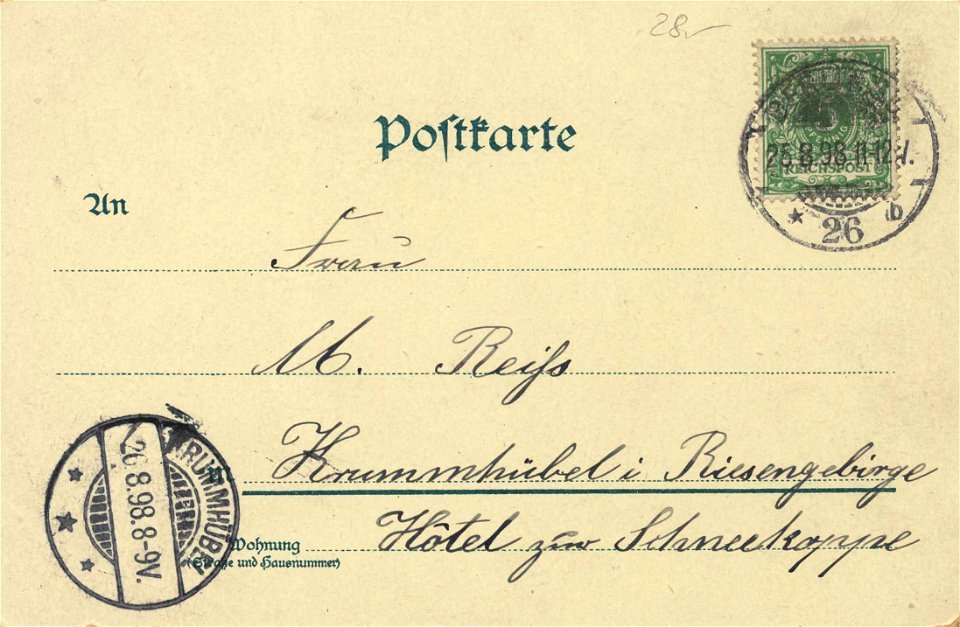 28,-
Postkarte
5
REICHSPOST
25.8.98.11-12V.
* 26 b
An
Frau
M. Reiſs
Krummhübel i Riesengebirge
Hôtel zur Schneekoppe
Wohnung
(Straße und Hausnummer)
KRUMMHÜBEL
26.8.98.8-9V.